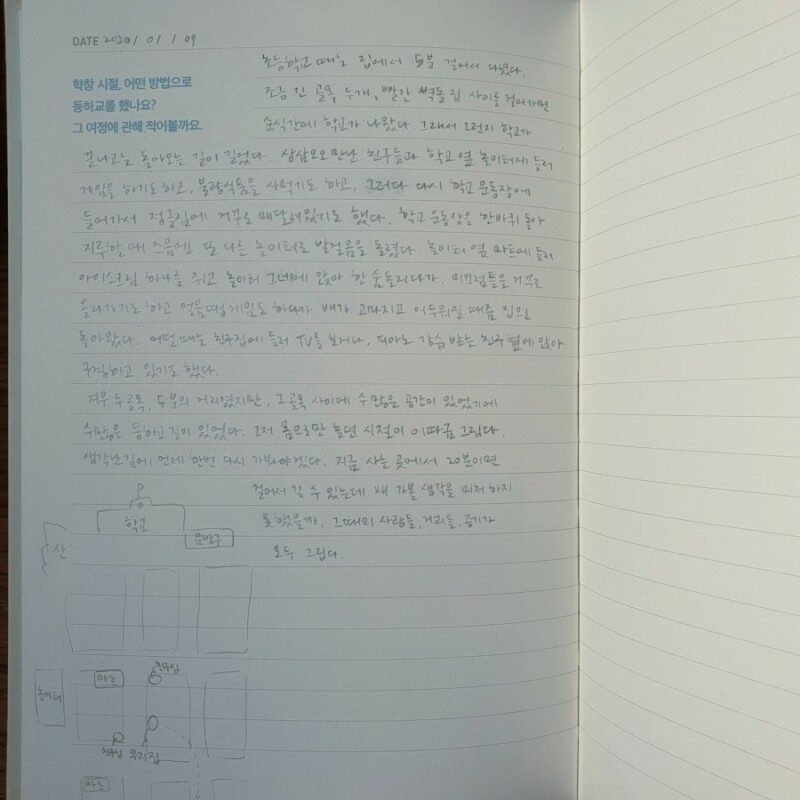 DATE 2020 / 01 / 09
학창 시절, 어떤 방법으로
등하교를 했나요?
그 여정에 관해 적어볼까요.
초등학교 때는 집에서 5분 걸어서 다녔다.
조금 긴 골목 두개, 빨간 벽돌 집 사이를 걸어가면
순식간에 학교가 나왔다. 그래서 그런지 학교가
끝나고는 돌아오는 길이 길었다. 삼삼오오 만난 친구들과 학교 옆 놀이터에 들러
게임을 하기도 하고, 불량식품을 사먹기도 하고, 그러다 다시 학교 운동장에
들어가서 정글짐에 거꾸로 매달려있기도 했다. 학교 운동장을 한바퀴 돌아
지루할 때 즈음엔 또 다른 놀이터로 발걸음을 돌렸다. 놀이터 옆 마트에 들러
아이스크림 하나를 쥐고 놀이터 그네에 앉아 한 숨 돌리다가, 미끄럼틀을 거꾸로
올라가기도 하고 얼음땡게임도 하다가 배가 고파지고 어두워질 때쯤 집으로
돌아왔다. 어떨 때는 친구집에 들러 TV를 보거나, 피아노 강습 받는 친구 옆에 앉아
구경하고 있기도 했다.
겨우 두골목, 5분의 거리였지만, 그 골목 사이에 수많은 공간이 있었기에
수많은 등하교길이 있었다. 그저 몸으로만 놀던 시절이 이따금 그립다.
생각난김에 언제 한번 다시 가봐야겠다. 지금 사는 곳에서 20분이면
걸어서 갈 수 있는데 왜 가볼 생각을 미처 하지
못했을까. 그때의 사람들, 거리들, 공기가
모두 그립다.
학교
문방구
산
친구집
마트
놀이터
우리집
마트